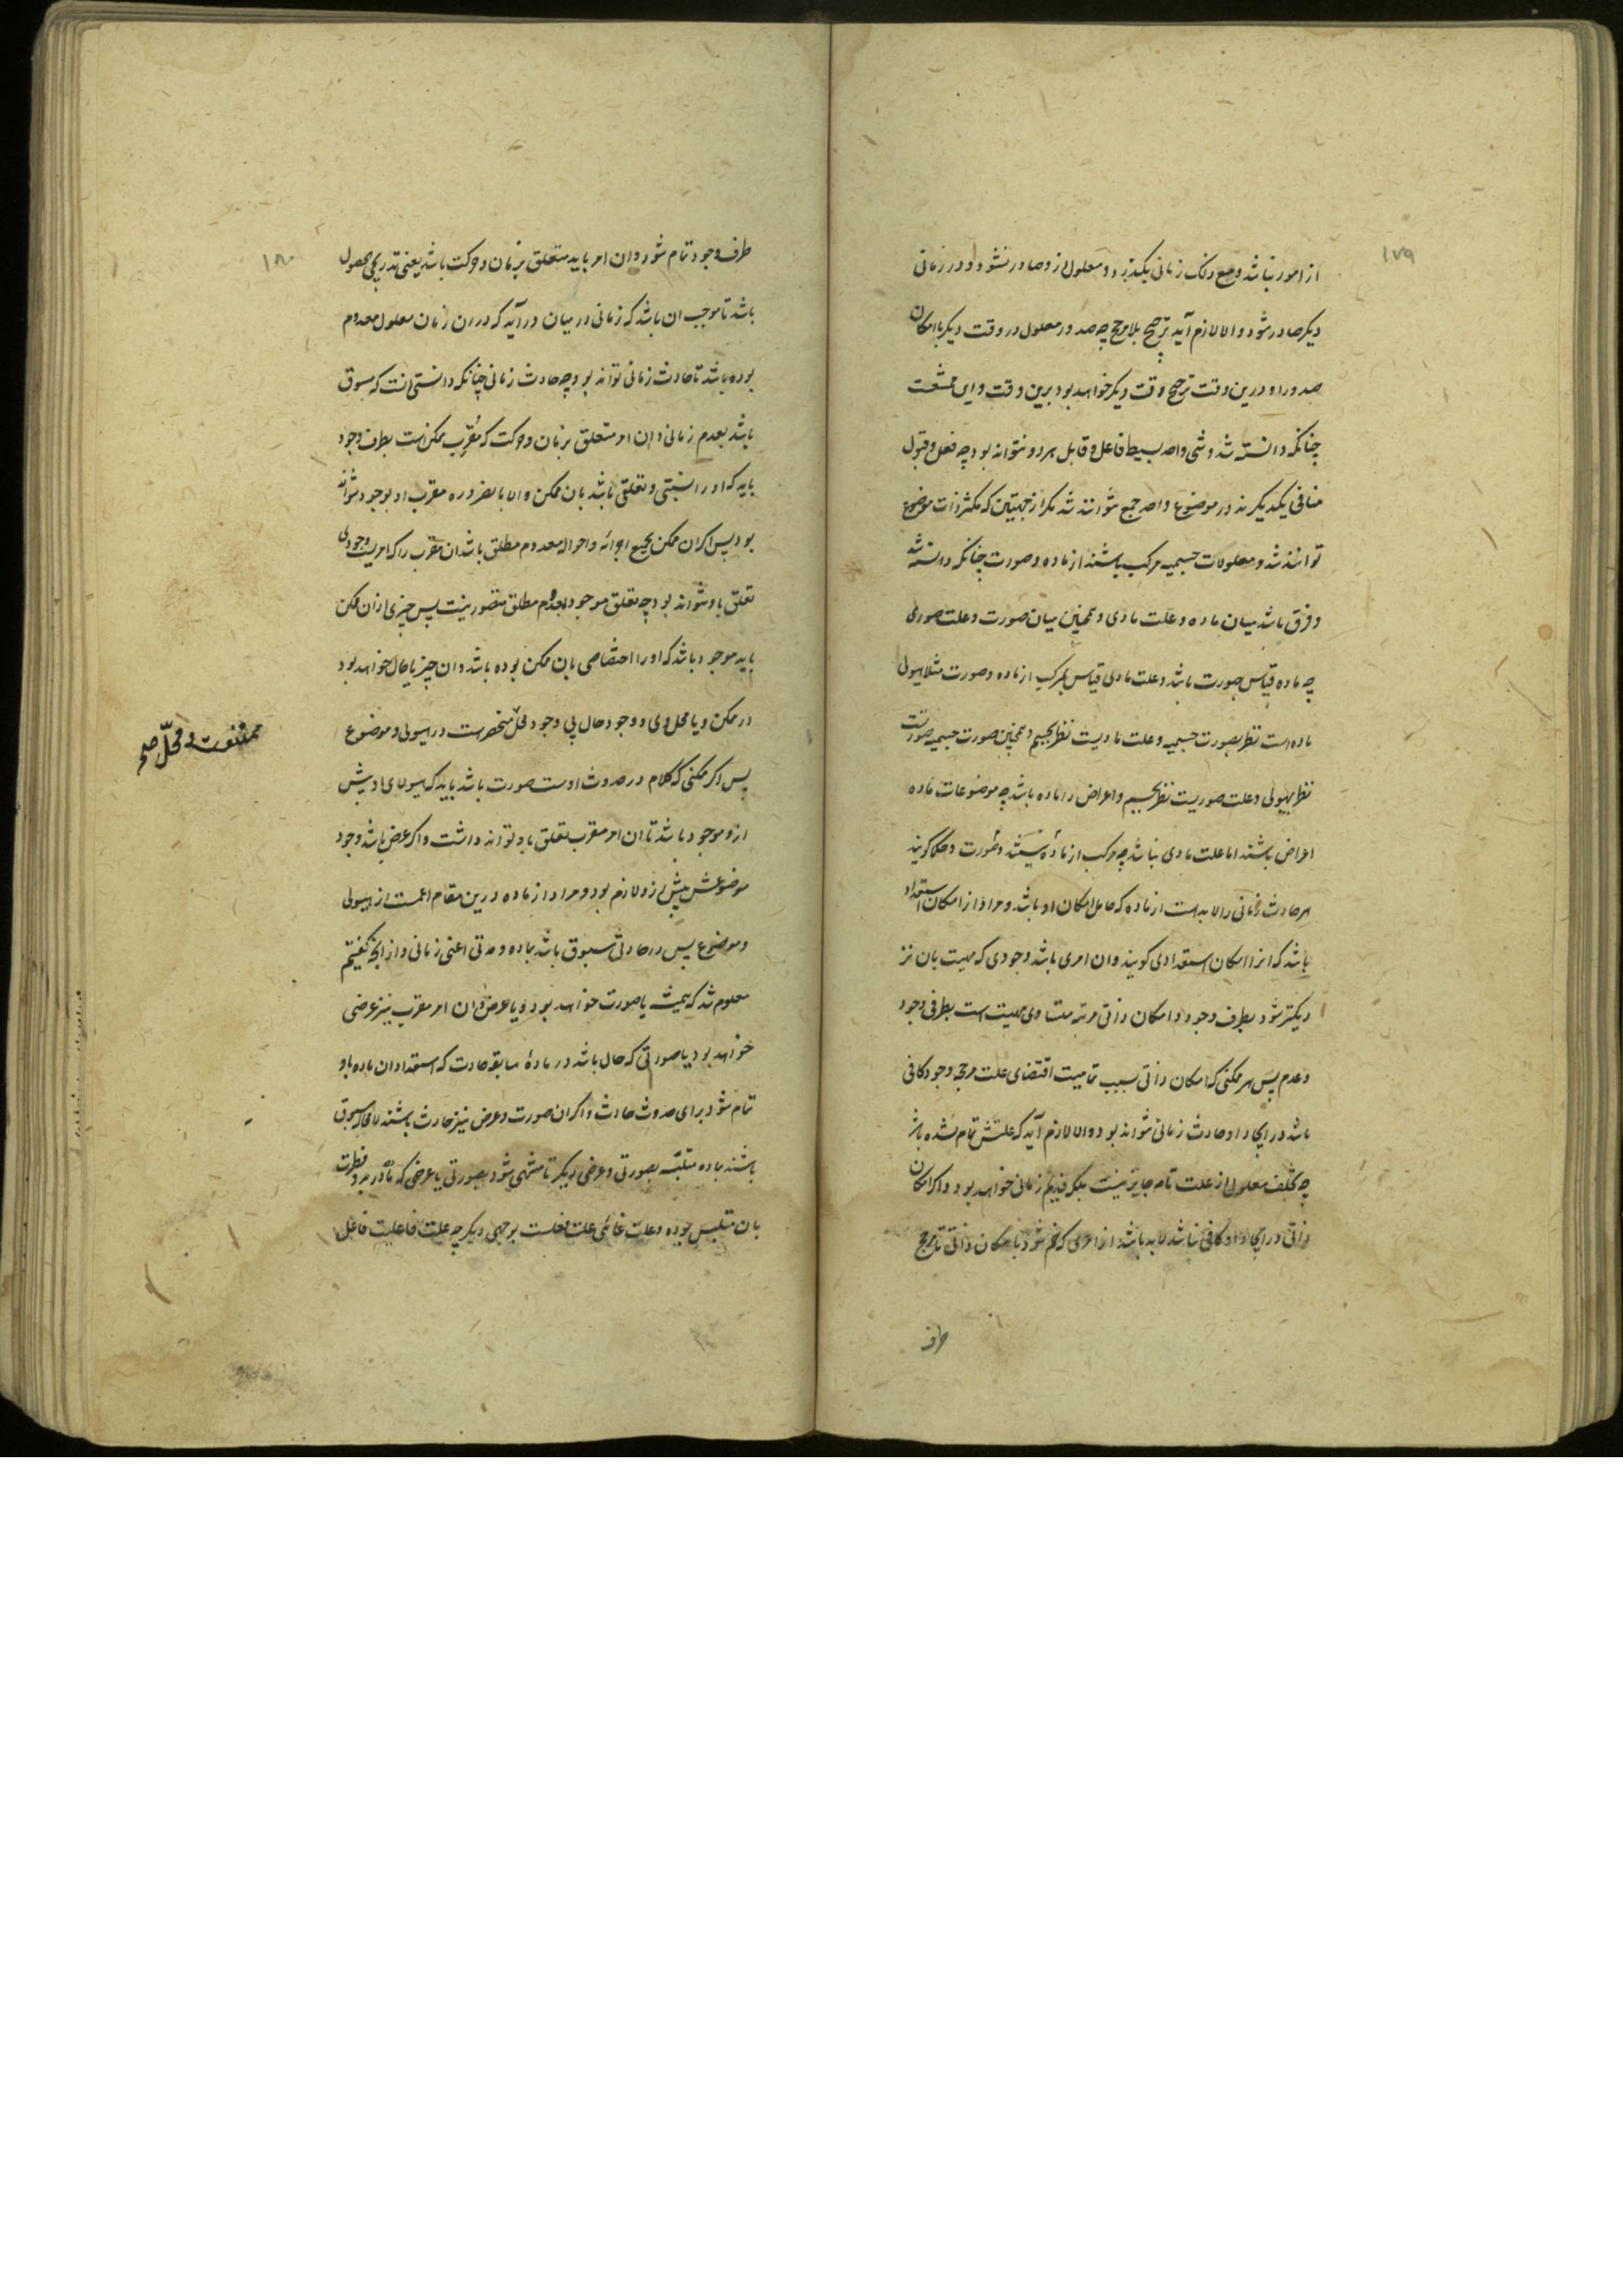 ١٧٩
از امور نباشد و مع ذلک زمانی بگذرد و معلول ازو صادر نشود و در زمانی
دیکر صادر شود و الا لازم آید ترجیح بلا مرجح چه صدور معلول در وقت دیکر با امکان
صدور او درین وقت ترجیح وقت دیکر خواهد بود برین وقت و این ممتنعست
چنانکه دانسته شد و شی واحد بسیط فاعل و قابل هر دو نتواند بود چه فعل و قبول
منافی یکدیکرند در موضوع واحد جمع نتوانند شد مکر از جهتین که مکثر ذات موضوع
توانند شد و معلولات جسمیه مرکب باشند از ماده و صورت چنانکه دانسته شد
و فرق باشد میان ماده و علت مادی و همچنین میان صورت و علت صوری
چه ماده قیاس بصورت باشد و علت مادی قیاس بمرکب از ماده و صورت مثلا هیولی
ماده است نظر بصورت جسمیه و علت مادیست نظر بجسم و همچنین صورت جسمیه صورتست
نظر بهیولی و علت صوریست نظر بجسم و اعراض را ماده باشد چه موضوعات ماده
اعراض باشند اما علت مادی نباشد چه مرکب از ماده نیستند و صورت و حکما کویند
هر حادث زمانی را لابدست از ماده که حامل امکان او باشد و مراد از امکان استعداد
باشد که انرا امکان استعدادی کویند و ان امری باشد وجودی که مهیت بان نز
دیکتر شود بطرف وجود و امکان ذاتی مرتبه متساوی مهیت است بطرفی وجود
و عدم پس هر ممکنی که امکان ذاتی بسبب تمامیت اقتضای علت مرجحه وجود کافی
باشد در ایجاد او حادث زمانی نتواند بود و الا لازم آید که علتش تمام نشده باشد
چه تخلف معلول از علت تامه جایز نیست بلکه قدیم زمانی خواهد بود و اکر امکان
ذاتی در ایجاد او کافی نباشد لابد باشد از امری که ضم شود با امکان ذاتی تا مرجح
طرف
١٨٠
طرف وجود تمام شود و ان امر باید متعلق بزمان و حرکت باشد یعنی تدریجی الحصول
باشد تا موجب ان باشد که زمانی در میان در آید که در ان زمان معلول معدوم
بوده باشد تا حادث زمانی تواند بود چه حادث زمانی چنانکه دانستی انست که مسبوق
باشد بعدم زمانی و ان امر متعلق بزمان و حرکت که مقرب ممکن است بطرف وجود
باید که او را نسبتی و تعلقی باشد بان ممکن و الا بالضروره مقرب او بوجود نتواند
بود پس اکر ان ممکن بجمیع اجزائه و احواله معدوم مطلق باشد ان مقرب را که امریست وجودی
تعلق باو نتواند بود چه تعلق موجود بمعدوم مطلق متصور نیست پس چیزی از ان ممکن
باید موجود باشد که او را اختصاصی بان ممکن بوده باشد و ان چیز یا حال خواهد بود
در ممکن و یا محل وی و وجود حال بی وجود محل منحصرست در هیولی و موضوع
ممتنعست و محلّ صح
پس اکر ممکنی که کلام در حدوث اوست صورت باشد باید که هیولای او پیش
ازو موجود باشد تا ان امر مقرب تعلق باو تواند داشت و اکر عرض باشد وجود
موضوعش پیش ازو لازم بود و مراد از ماده درین مقام اعمست از هیولی
و موضوع پس هر حادثی مسبوق باشد بماده و مدتی اعنی زمانی و از انچه کفتیم
معلوم شد که همیشه یا صورت خواهد بود و یا عرض و ان امر مقرب نیز عرضی
خواهد بود یا صورتی که حال باشد در مادهٔ سابقه حادث که استعداد ان ماده باو
تمام شود برای حدوث حادث و اکر ان صورت و عرض نیز حادث باشند لا محاله مسبوق
باشند بماده متلبسه بصورتی و عرضی دیکر تا منتهی شود بصورتی یا عرضی که ماده در بدو فطرت
بان متلبس بوده و علت غائی علت فعلست بوجهی دیکر چه علت فاعلیت فاعل